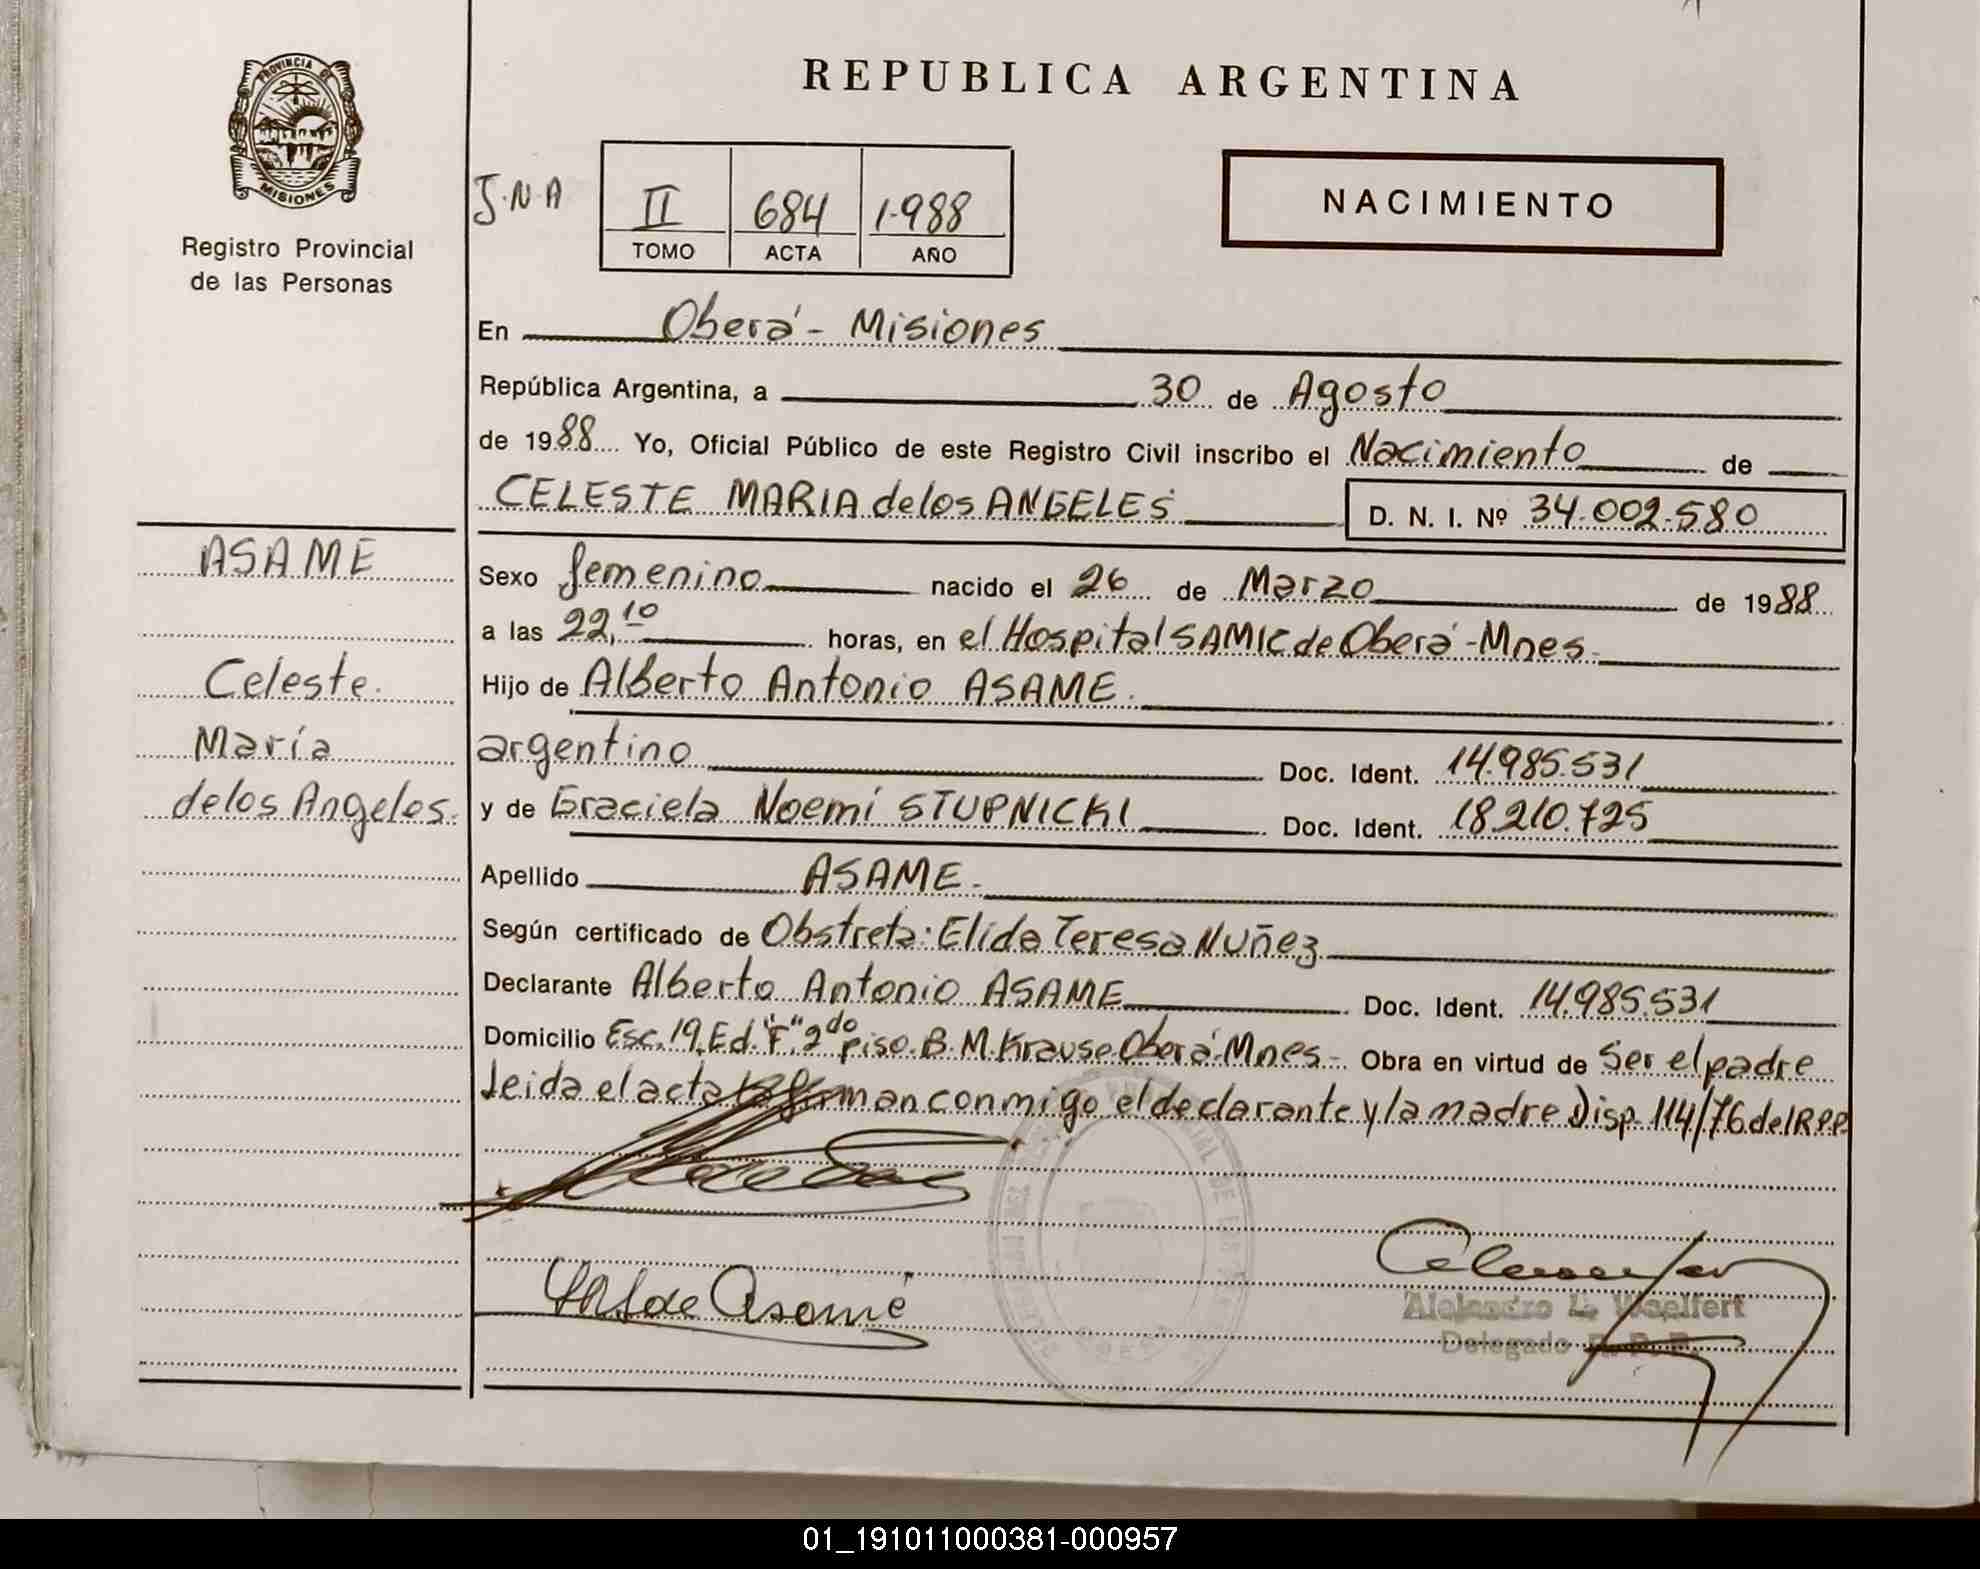 PROVINCIA DE
MISIONES
Registro Provincial
de las Personas
REPUBLICA ARGENTINA
J.N.A
II 684 1.988
TOMO ACTA AÑO
NACIMIENTO
En Oberá - Misiones
República Argentina, a 30 de Agosto
de 1988 Yo, Oficial Público de este Registro Civil inscribo el Nacimiento de
CELESTE MARIA de los ANGELES D. N. I. Nº 34.002.580
ASAME
Celeste.
María
de los Angeles.
Sexo femenino nacido el 26 de Marzo de 1988
a las 22,10 horas, en el Hospital SAMIC de Oberá - Mnes.
Hijo de Alberto Antonio ASAME.
argentino Doc. Ident. 14.985.531
y de Graciela Noemí STUPNICKI Doc. Ident. 18.210.725
Apellido ASAME.
Según certificado de Obstreta: Elida Teresa Nuñez
Declarante Alberto Antonio ASAME Doc. Ident. 14.985.531
Domicilio Esc. 19. Ed. "F". 2do piso. B. M. Krause Oberá - Mnes. Obra en virtud de Ser el padre
Leida el acta la firman conmigo el declarante y la madre Disp. 114/76 del R.P.P.
de Asamé
Alejandro L. Woelfert
Delegado R. P. P.
01_191011000381-000957